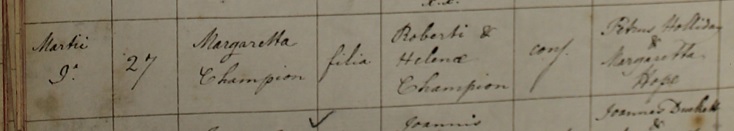 Martii
9.a
27
Margaretta
Champion
filia
Roberti &
Helenæ
Champion
conj.
Petrus Holliday
&
Margaretta
Hope
Joannis
Joannes
&